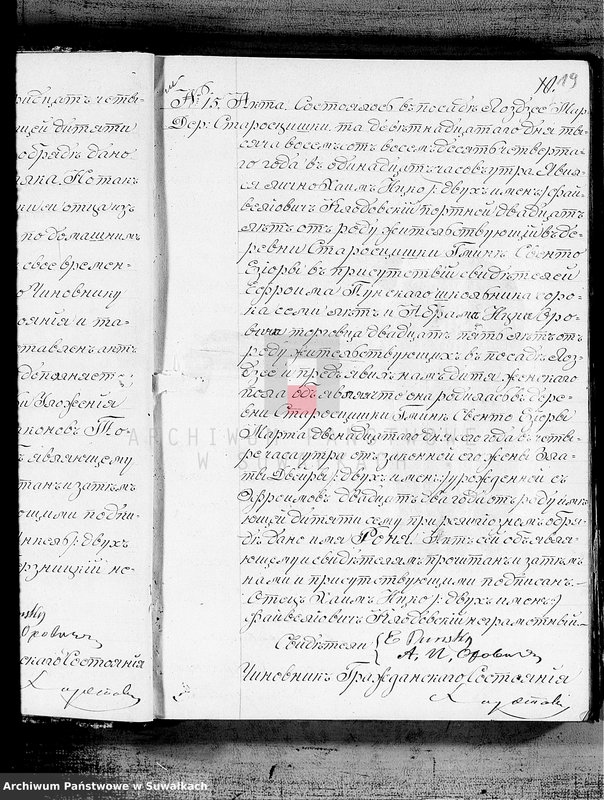 ридцать четвѣ-
щей дитяти
обрядѣ дано
отца изъ
по домашнимъ
своевремен-
Чиновнику
тоянія и та-
ставленъ актъ
дополняетъ
Уложенія
являющему
танъ и затѣмъ
ющими подпи-
двухъ
рзницкій не-
Оровичъ
скаго Состоянія
19
№ 15. Акта. Состоялось въ посадѣ Лоздзее Мар-
Дер: Старосцишки. та девятнадцатаго дня ты-
сяча восемьсотъ восемьдесятъ четверта-
го года въ одинадцать часовъ утра. Яви-
ся лично Хаимъ Ицко /: двухъ именъ:/ Фай-
веліовичъ портной двадцать
лѣтъ отъ роду жительствующій въ де-
ревни Старосцишки Гминѣ Свенто
Езіоры въ присутствій свидѣтелей
Ефроима Пунскаго школьника соро-
ка семи лѣтъ и Абрама Ицка Оро-
вича торговца двадцать пято лѣтъ отъ
роду жительствующихъ въ посадѣ Лоз-
дзее и предъявилъ намъ дитя женскаго
пола объявляя что она родилась въ дере-
вни Старосцишки Гминѣ Свенто Езіоры
Марта двенадцатаго дня сего года въ четы-
ре часа утра отъ законной его жены Зла-
ты Двейры /: двухъ именъ:/ урожденной съ
Эфроимовъ двадцать два года отъ роду имѣ-
ющей дитяти сему при религіозномъ обря-
дѣ дано имя Роня. Актъ сей объявля-
ющему и свидѣтелямъ прочтанъ и затѣмъ
нами и присутствующими подписанъ. —
Отецъ Хаимъ Ицко /: двухъ именъ:/
Файвеліовичъ неграмотный. —
Свидѣтели { E Punsky
А. И. Оровичъ
Чиновникъ Гражданскаго Состоянія
ARCHIWUM PAŃSTWOWE
W SUWAŁKACH
Archiwum Państwowe w Suwałkach